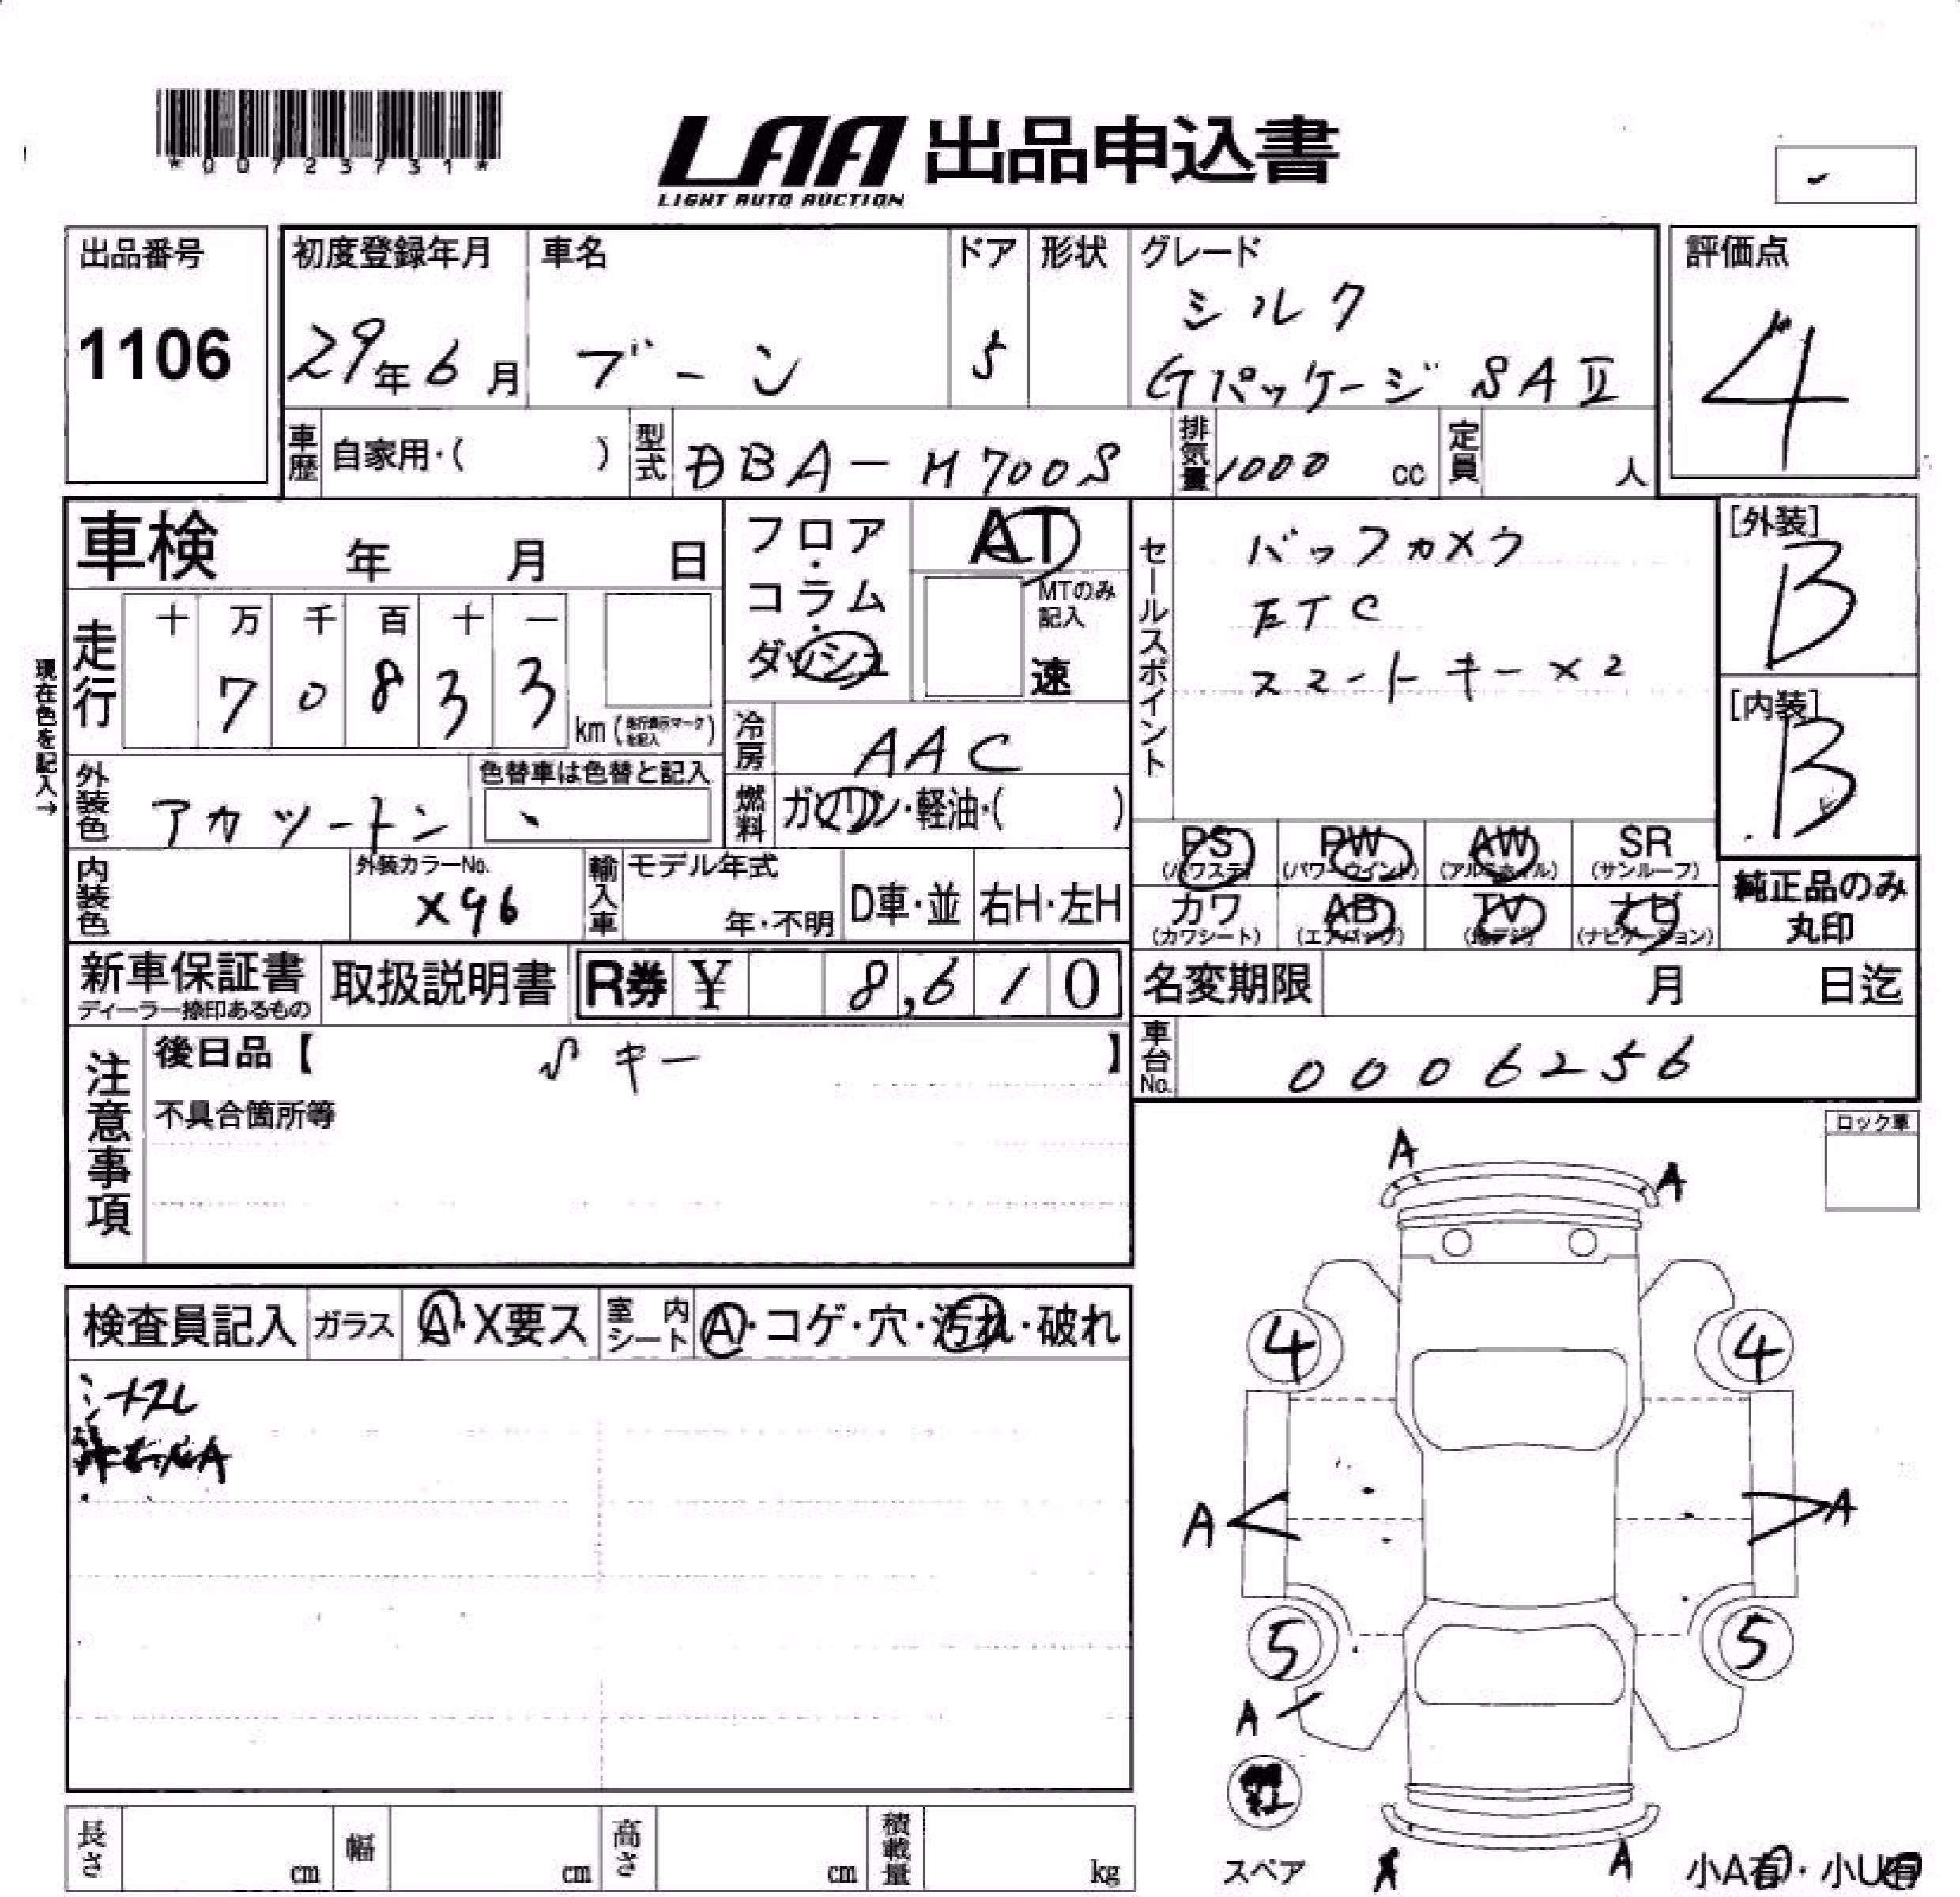 *00723731*
LAA 出品申込書
LIGHT AUTO AUCTION
出品番号
1106
初度登録年月
29年6月
車名
ブーン
ドア
5
形状
グレード
シルク
Gパッケージ SAⅡ
評価点
4
車歴 自家用・( )
型式 DBA-M700S
排気量 1000 cc
定員 人
車検 年 月 日
フロア・コラム・ダッシュ
AT
MTのみ記入
速
セールスポイント
バックカメラ
ETC
スマートキー×2
[外装]
B
[内装]
B
現在色を記入→
走行 十 万 千 百 十 一
7 0 8 3 3
km (走行表示マークを記入)
冷房 AAC
外装色 アカツートン
色替車は色替と記入
燃料 ガソリン・軽油・( )
PS (パワステ)
PW (パワーウインド)
AW (アルミホイル)
SR (サンルーフ)
カワ (カワシート)
AB (エアバッグ)
TV (地デジ)
ナビ (ナビゲーション)
純正品のみ丸印
内装色
外装カラーNo.
X96
輸入車
モデル年式
年・不明
D車・並
右H・左H
新車保証書
ディーラー捺印あるもの
取扱説明書
R券 ¥ 8,610
名変期限 月 日迄
注意事項
後日品【 Sキー 】
不具合箇所等
車台No. 0006256
ロック車
検査員記入
ガラス A・X要ス
室内シート A・コゲ・穴・汚れ・破れ
A A
4 4
A A
5 5
A
スペア
A A
小A有・小U有
長さ cm
幅 cm
高さ cm
積載量 kg